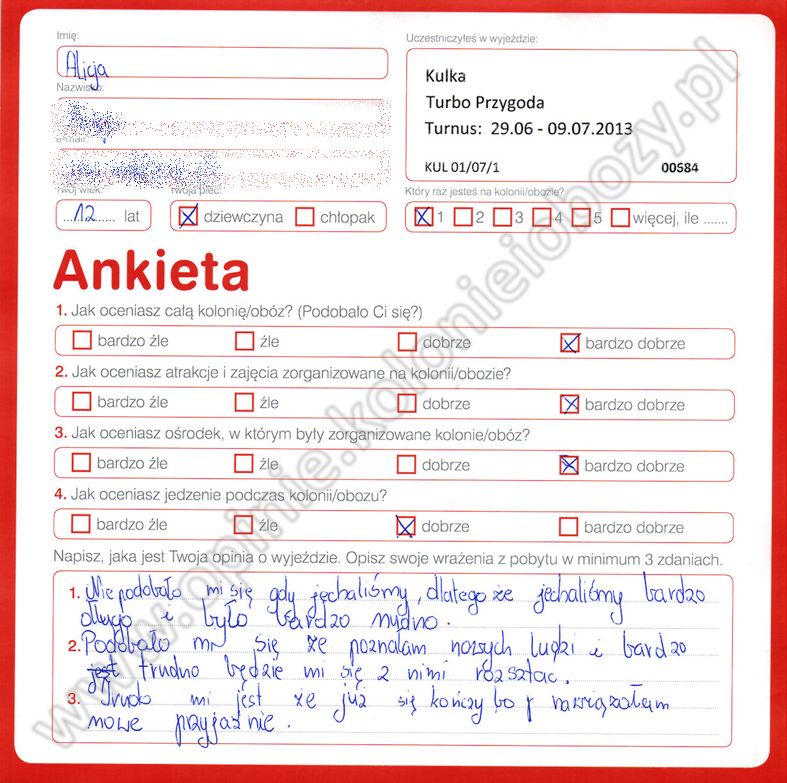 Imię:
Alicja
Nazwisko:
e-mail:
Twój wiek:
12 lat
Twoja płeć:
dziewczyna chłopak
Uczestniczyłeś w wyjeździe:
Kulka
Turbo Przygoda
Turnus: 29.06 - 09.07.2013
KUL 01/07/1 00584
Który raz jesteś na kolonii/obozie?
1 2 3 4 5 więcej, ile .......
Ankieta
1. Jak oceniasz całą kolonię/obóz? (Podobało Ci się?)
bardzo źle źle dobrze bardzo dobrze
2. Jak oceniasz atrakcje i zajęcia zorganizowane na kolonii/obozie?
bardzo źle źle dobrze bardzo dobrze
3. Jak oceniasz ośrodek, w którym były zorganizowane kolonie/obóz?
bardzo źle źle dobrze bardzo dobrze
4. Jak oceniasz jedzenie podczas kolonii/obozu?
bardzo źle źle dobrze bardzo dobrze
Napisz, jaka jest Twoja opinia o wyjeździe. Opisz swoje wrażenia z pobytu w minimum 3 zdaniach.
1. Nie podobało mi się gdy jechaliśmy, dlatego że jechaliśmy bardzo
długo i było bardzo nudno.
2. Podobało mi się że poznałam nowych ludzi i bardzo
jest trudno będzie mi się z nimi rozstac.
3. Trudo mi jest że już się kończy bo nawiązałam
nowe przyjaźnie.
www.opinie.kolonieiobozy.pl